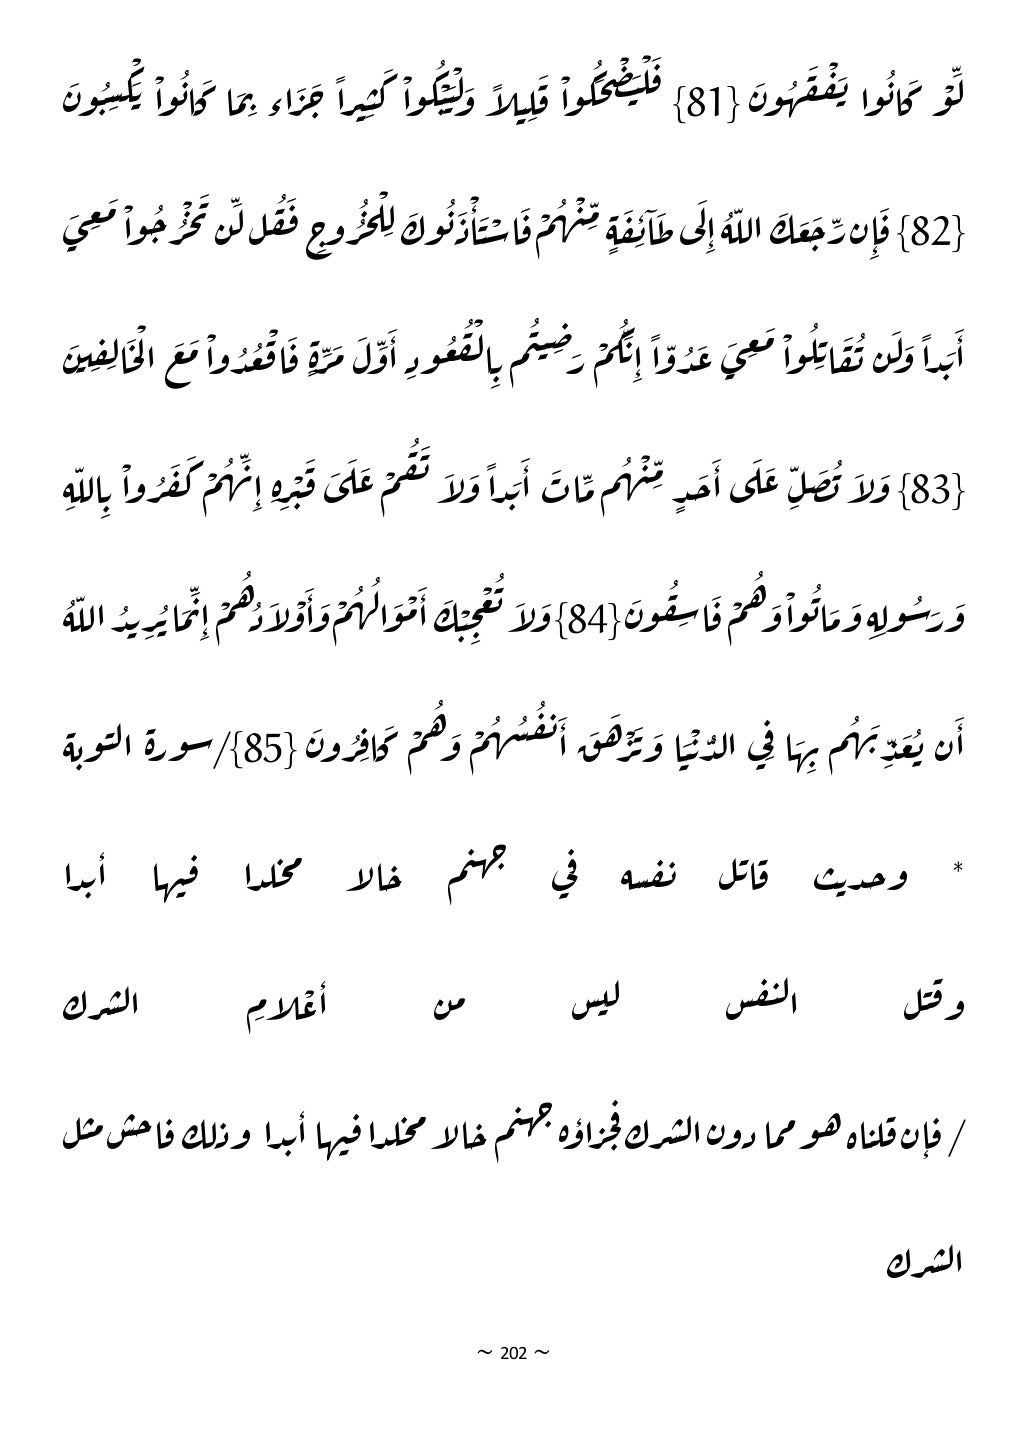 لَّوْ كَانُوا يَفْقَهُونَ {81} فَلْيَضْحَكُواْ قَلِيلاً وَلْيَبْكُواْ كَثِيراً جَزَاء بِمَا كَانُواْ يَكْسِبُونَ
{82} فَإِن رَّجَعَكَ اللّهُ إِلَى طَآئِفَةٍ مِّنْهُمْ فَاسْتَأْذَنُوكَ لِلْخُرُوجِ فَقُل لَّن تَخْرُجُواْ مَعِيَ
أَبَداً وَلَن تُقَاتِلُواْ مَعِيَ عَدُوّاً إِنَّكُمْ رَضِيتُم بِالْقُعُودِ أَوَّلَ مَرَّةٍ فَاقْعُدُواْ مَعَ الْخَالِفِينَ
{83} وَلاَ تُصَلِّ عَلَى أَحَدٍ مِّنْهُم مَّاتَ أَبَداً وَلاَ تَقُمْ عَلَىَ قَبْرِهِ إِنَّهُمْ كَفَرُواْ بِاللّهِ
وَرَسُولِهِ وَمَاتُواْ وَهُمْ فَاسِقُونَ {84} وَلاَ تُعْجِبْكَ أَمْوَالُهُمْ وَأَوْلاَدُهُمْ إِنَّمَا يُرِيدُ اللّهُ
أَن يُعَذِّبَهُم بِهَا فِي الدُّنْيَا وَتَزْهَقَ أَنفُسُهُمْ وَهُمْ كَافِرُونَ {85}/سورة التوبة
* وحديث قاتل نفسه في جهنم خالا مخلدا فيها أبدا
وقتل النفس ليس من أعْلامِ الشرك
/ فإن قلناه هو مما دون الشرك فجزاؤه جهنم خالا مخلدا فيها أبدا وذلك فاحش مثل
الشرك
~ 202 ~